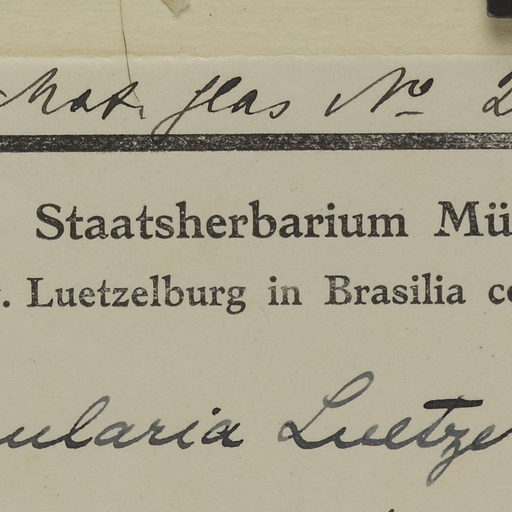 Mat. glas No 2
Staatsherbarium Mü
v. Luetzelburg in Brasilia co
ularia Luetze